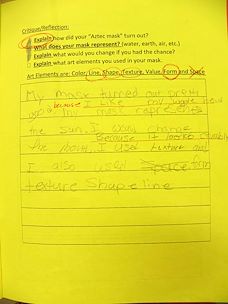 Critique/Reflection:
Explain how did your "Aztec mask" turn out?
What does your mask represent? (water, earth, air, etc.)
Explain what would you change if you had the chance?
Explain what art elements you used in your mask.
Art Elements are: Color, Line, Shape, Texture, Value, Form and Space
My mask turned out pretty
because I like my
my mask represents
the sun. I would change
Because it looks
the mouth. I used texture and
I also used Space form
texture shape line